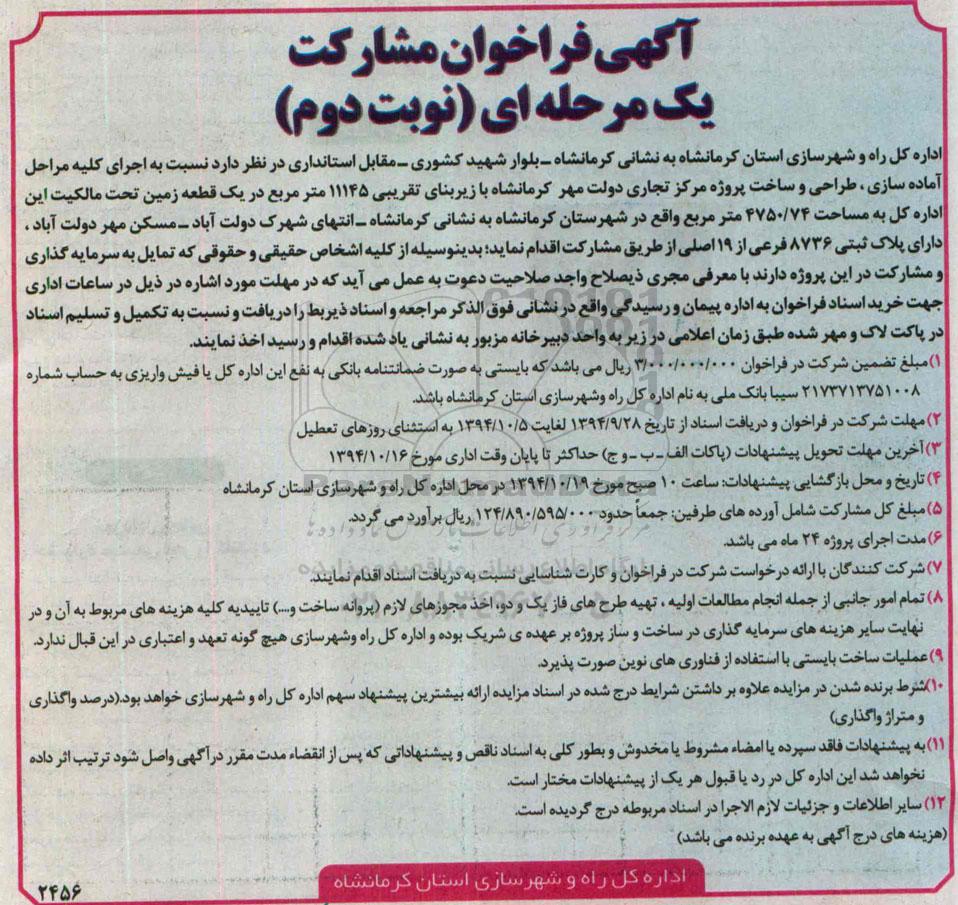 آگهی فراخوان مشارکت
یک مرحله ای (نوبت دوم)
اداره کل راه و شهرسازی استان کرمانشاه به نشانی کرمانشاه ـ بلوار شهید کشوری ـ مقابل استانداری در نظر دارد نسبت به اجرای کلیه مراحل
آماده سازی ، طراحی و ساخت پروژه مرکز تجاری دولت مهر کرمانشاه با زیربنای تقریبی ۱۱۱۴۵ متر مربع در یک قطعه زمین تحت مالکیت این
اداره کل به مساحت ۴۷۵۰/۷۴ متر مربع واقع در شهرستان کرمانشاه به نشانی کرمانشاه ـ انتهای شهرک دولت آباد ـ مسکن مهر دولت آباد ،
دارای پلاک ثبتی ۸۷۳۶ فرعی از ۱۹ اصلی از طریق مشارکت اقدام نماید؛ بدینوسیله از کلیه اشخاص حقیقی و حقوقی که تمایل به سرمایه گذاری
و مشارکت در این پروژه دارند با معرفی مجری ذیصلاح واجد صلاحیت دعوت به عمل می آید که در مهلت مورد اشاره در ذیل در ساعات اداری
جهت خرید اسناد فراخوان به اداره پیمان و رسیدگی واقع در نشانی فوق الذکر مراجعه و اسناد ذیربط را دریافت و نسبت به تکمیل و تسلیم اسناد
در پاکت لاک و مهر شده طبق زمان اعلامی در زیر به واحد دبیرخانه مزبور به نشانی یاد شده اقدام و رسید اخذ نمایند.
۱) مبلغ تضمین شرکت در فراخوان ۳/۰۰۰/۰۰۰/۰۰۰ ریال می باشد که بایستی به صورت ضمانتنامه بانکی به نفع این اداره کل یا فیش واریزی به حساب شماره
۲۱۷۳۷۱۳۷۵۱۰۰۸ سیبا بانک ملی به نام اداره کل راه وشهرسازی استان کرمانشاه باشد.
۲) مهلت شرکت در فراخوان و دریافت اسناد از تاریخ ۱۳۹۴/۹/۲۸ لغایت ۱۳۹۴/۱۰/۵ به استثنای روزهای تعطیل
۳) آخرین مهلت تحویل پیشنهادات (پاکات الف ـ ب ـ و ج) حداکثر تا پایان وقت اداری مورخ ۱۳۹۴/۱۰/۱۶
۴) تاریخ و محل بازگشایی پیشنهادات: ساعت ۱۰ صبح مورخ ۱۳۹۴/۱۰/۱۹ در محل اداره کل راه و شهرسازی استان کرمانشاه
۵) مبلغ کل مشارکت شامل آورده های طرفین: جمعاً حدود ۱۲۴/۸۹۰/۵۹۵/۰۰۰ ریال برآورد می گردد.
۶) مدت اجرای پروژه ۲۴ ماه می باشد.
۷) شرکت کنندگان با ارائه درخواست شرکت در فراخوان و کارت شناسایی نسبت به دریافت اسناد اقدام نمایند.
۸) تمام امور جانبی از جمله انجام مطالعات اولیه ، تهیه طرح های فاز یک و دو، اخذ مجوزهای لازم (پروانه ساخت و....) تاییدیه کلیه هزینه های مربوط به آن و در
نهایت سایر هزینه های سرمایه گذاری در ساخت و ساز پروژه بر عهده ی شریک بوده و اداره کل راه وشهرسازی هیچ گونه تعهد و اعتباری در این قبال ندارد.
۹) عملیات ساخت بایستی با استفاده از فناوری های نوین صورت پذیرد.
۱۰) شرط برنده شدن در مزایده علاوه بر داشتن شرایط درج شده در اسناد مزایده ارائه بیشترین پیشنهاد سهم اداره کل راه و شهرسازی خواهد بود.(درصد واگذاری
و متراژ واگذاری)
۱۱) به پیشنهادات فاقد سپرده یا امضاء مشروط یا مخدوش و بطور کلی به اسناد ناقص و پیشنهاداتی که پس از انقضاء مدت مقرر درآگهی واصل شود ترتیب اثر داده
نخواهد شد این اداره کل در رد یا قبول هر یک از پیشنهادات مختار است.
۱۲) سایر اطلاعات و جزئیات لازم الاجرا در اسناد مربوطه درج گردیده است.
(هزینه های درج آگهی به عهده برنده می باشد)
اداره کل راه و شهرسازی استان کرمانشاه
۲۴۵۶